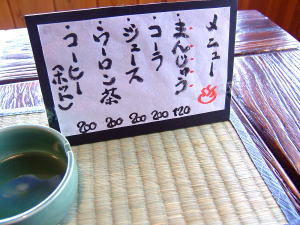 メニュー
・まんじゅう 120
・コーラ 200
・ジュース 200
・ウーロン茶 200
・コーヒー 200
(ホット)